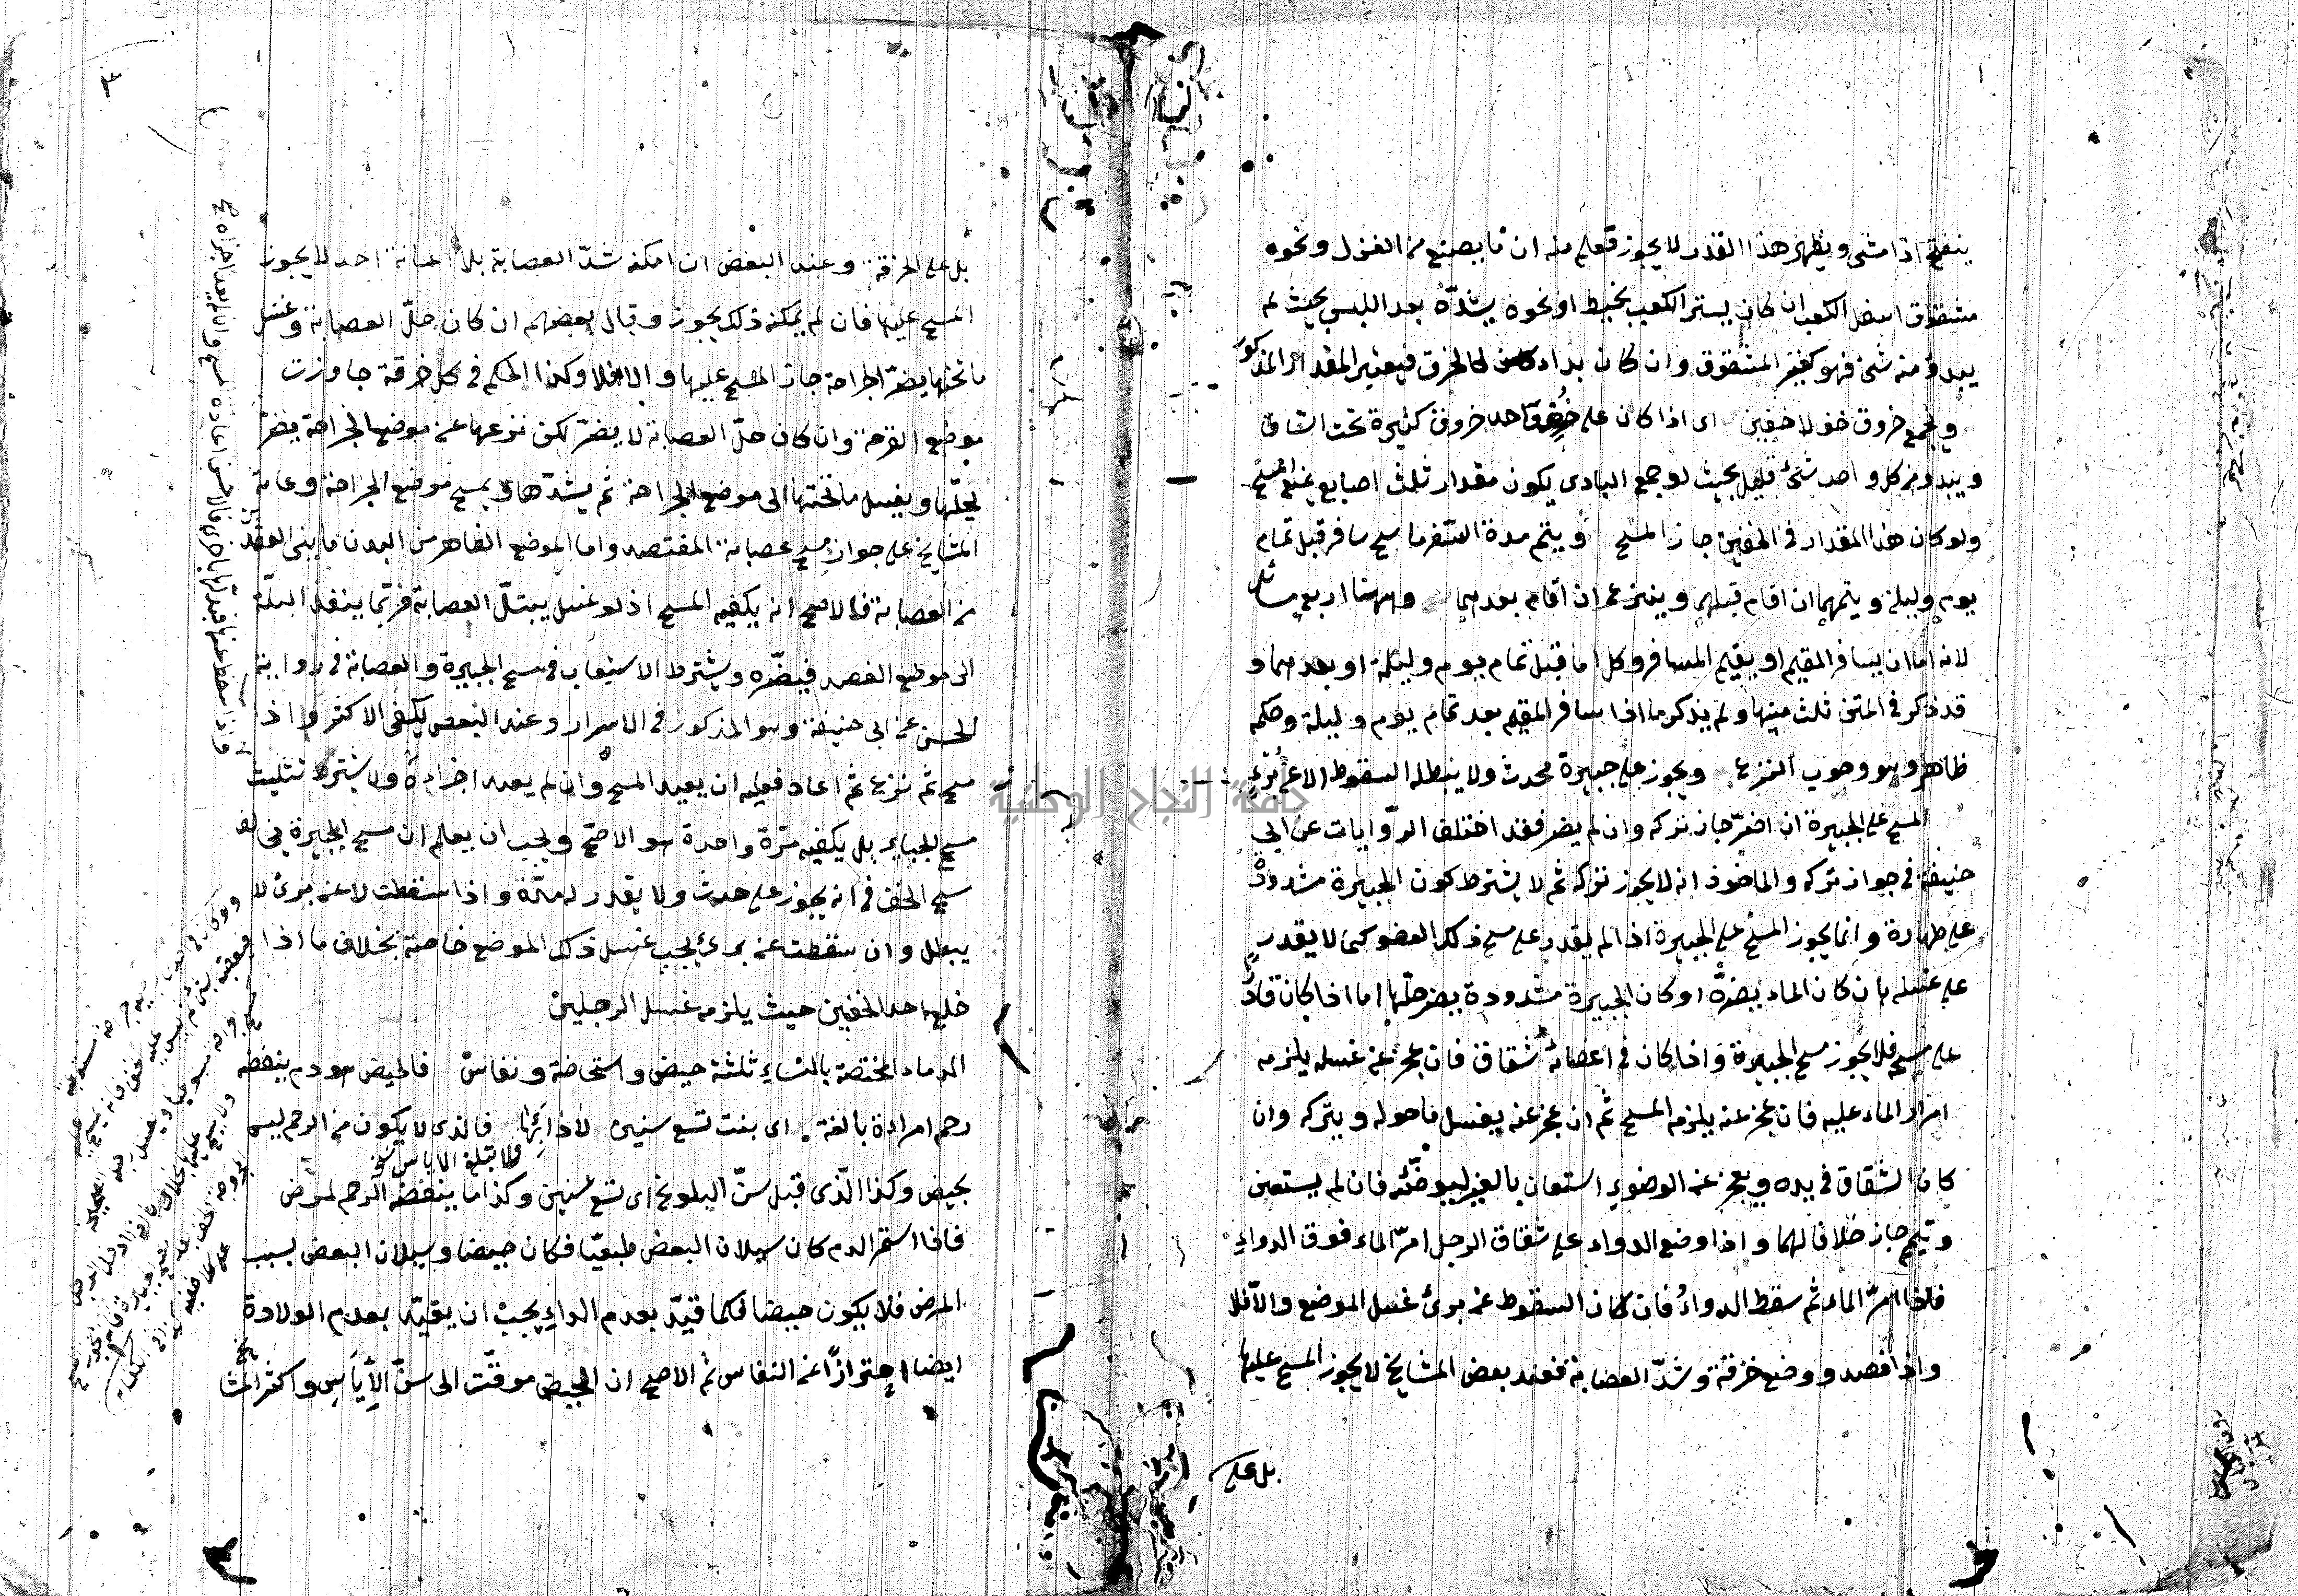 ينفتح اذا مشى ويظهر هذا القدر لا يجوز فعلم منه ان ما يصنع من الغزل ونحوه
مشقوق اسفل الكعب ان كان يستر الكعب بخيط او نحوه يشدّه بعد اللبس بحيث لم
يبدو منه شئ فهو كغير المشقوق وان كان بدا كان كالخرق فيعتبر المقدار المذكور
ويجمع خروق خف لا خفين اى اذا كان على خف واحد خروق كثيرة تحت الساق
ويبدو من كل واحد شئ قليل بحيث لو جمع البادى يكون مقدار ثلث اصابع يمنع المسح
ولو كان هذا المقدار فى الخفين جاز المسح ويتم مدة السفر ماسح سافر قبل تمام
يوم وليلة ويتمهما ان اقام قبلهما وينزع ان اقام بعدهما وههنا اربع مسائل
لانه اما ان يسافر المقيم او يقيم المسافر وكل اما قبل تمام يوم وليلة او بعدهما و
قد ذكر فى المتن ثلث منها ولم يذكر ما اذا سافر المقيم بعد تمام يوم وليلة وحكمه
ظاهر وهو وجوب النزع ويجوز على جبيرة محدث ولا يبطله السقوط الا عن برء
المسح على الجبيرة ان اضرّ جاز تركه وان لم يضر فقد اختلف الرّوايات عن ابى
حنيفة فى جواز تركه والماخوذ انه لا يجوز تركه ثم لا يشترط كون الجبيرة مشدودة
على طهارة وانما يجوز المسح على الجبيرة اذا لم يقدر على مسح ذلك العضو كما لا يقدر
على غسله بان كان الماء يضرّه او كان الجبيرة مشدودة يضر حلّها اما اذا كان قادرا
على مسحه فلا يجوز مسح الجبيرة واذا كان فى اعضائه شقاق فان عجز عن غسله يلزمه
امرار الماء عليه فان عجز عنه يلزمه المسح ثم ان عجز عنه يغسل ما حوله ويتركه وان
كان الشقاق فى يده ويعجز عن الوضوء استعان بالغير ليوضّئه فان لم يستعن
وتيمم جاز خلافا لهما واذا وضع الدواء على شقاق الرجل امرّ الماء فوق الدواء
فاذا امرّ الماء ثم سقط الدواء فان كان السقوط عن برئ غسل الموضع والّا فلا
واذا فصد ووضع خرقة وشدّ العصابة فعند بعض المشايخ لا يجوز المسح عليها
بل على
بل على الخرقة وعند البعض ان امكنه شدّ العصابة بلا اعانة احد لا يجوز
المسح عليها فان لم يمكنه ذلك يجوز وقال بعضهم ان كان حلّ العصابة وغسل
ما تحتها يضرّ الجراحة جاز المسح عليها والا فلا وكذا الحكم فى كل خرقة جاوزت
موضع القرحة وان كان حلّ العصابة لا يضرّ لكن نزعها عن موضع الجراحة يضرّ
يحلّها ويغسل ما تحتها الى موضع الجراحة ثم يشدّها ويمسح موضع الجراحة وعامة
المشايخ على جواز مسح عصابة المفتصد واما الموضع الظاهر من البدن ما بين العقدتين
من العصابة فالاصح انه يكفيه المسح اذ لو غسل يبتلّ العصابة فربّما ينفذ البلّة
الى موضع الفصد فيضرّه ويشترط الاستيعاب فى مسح الجبيرة والعصابة فى رواية
الحسن عن ابى حنيفة وهو المذكور فى الاسرار وعند البعض يكفى الاكثر واذا
مسح ثم نزعها ثم اعاد فعليه ان يعيد المسح وان لم يعد اجزاه ولا يشترط تثليث
مسح الجباير بل يكفيه مرّة واحدة هو الاصحّ ويجب ان يعلم ان مسح الجبيرة يخالف
مسح الخف فى انه يجوز على حدث ولا يقدر له مدّة واذا سقطت لا عن برئ لا
يبطل وان سقطت عن برئ يجب غسل ذلك الموضع خاصة بخلاف ما اذا
خلع احد الخفين حيث يلزمه غسل الرجلين
الدماء المختصة بالنساء ثلثة حيض واستحاضة ونفاس فالحيض هو دم ينفضه
رحم امرأة بالغة اى بنت تسع سنين لا داء بها فالذى لا يكون من الرحم ليس
ولا تبلغ الاياس
بحيض وكذا الّذى قبل سنّ البلوغ اى تسع سنين وكذا ما ينفضه الرحم لمرض
فاذا استمر الدم كان سيلان البعض طبعيّا فكان حيضا وسيلان البعض بسبب
المرض فلا يكون حيضا فكما قيّد بعدم الداء يجب ان يقيّد بعدم الولادة
ايضا احترازًا عن النفاس ثم الاصح ان الحيض موقّت الى سنّ الاياس واكثر المشا
واذا سقط عنها فبدلها باخرى فالاحسن اعادة المسح وان لم يعد اجزاه
جامعة النجاح الوطنية